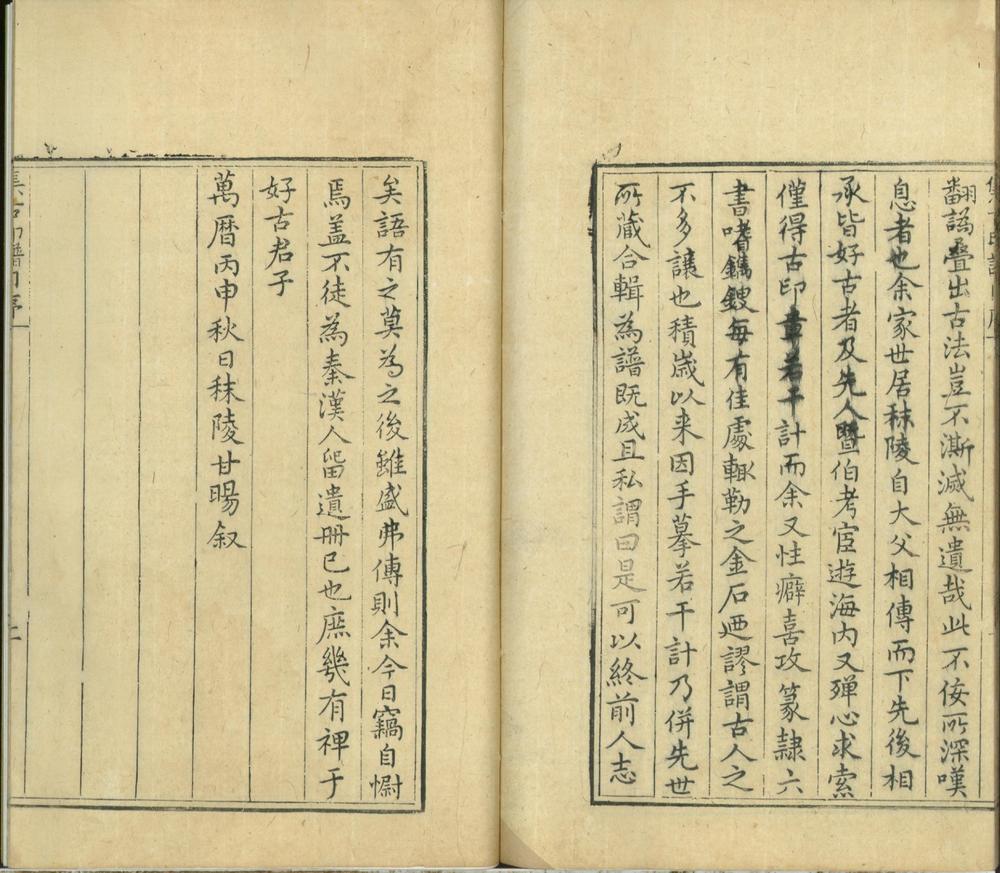 翻譌疊出古法豈不澌滅無遺哉此不佞所深嘆
息者也余家世居秣陵自大父相傳而下先後相
承皆好古者及先人暨伯考宦遊海内又殫心求索
僅得古印章若干計而余又性癖喜攻篆隸六
書嗜鐫鎪每有佳處輙勒之金石廼謬謂古人之
不多讓也積歲以来因手摹若干計乃併先世
所藏合輯為譜既成且私謂曰是可以終前人志
矣語有之莫為之後雖盛弗傳則余今日竊自慰
焉盖不徒為秦漢人留遺冊已也庶幾有裨于
好古君子
萬曆丙申秋日秣陵甘暘叙
集古印譜自序
二